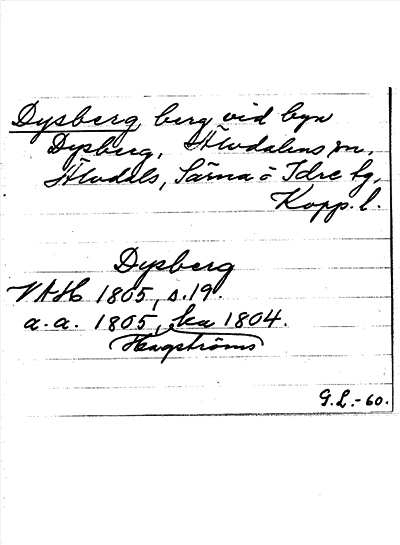 Dysberg, berg vid byn
Dysberg, Älvdalens sn,
Älvdals, Särna o Idre tg,
Kopp. l.
Dysberg
VAH 1805, s. 19.
a. a. 1805, ka 1804.
Hagströms
G. L. -60.